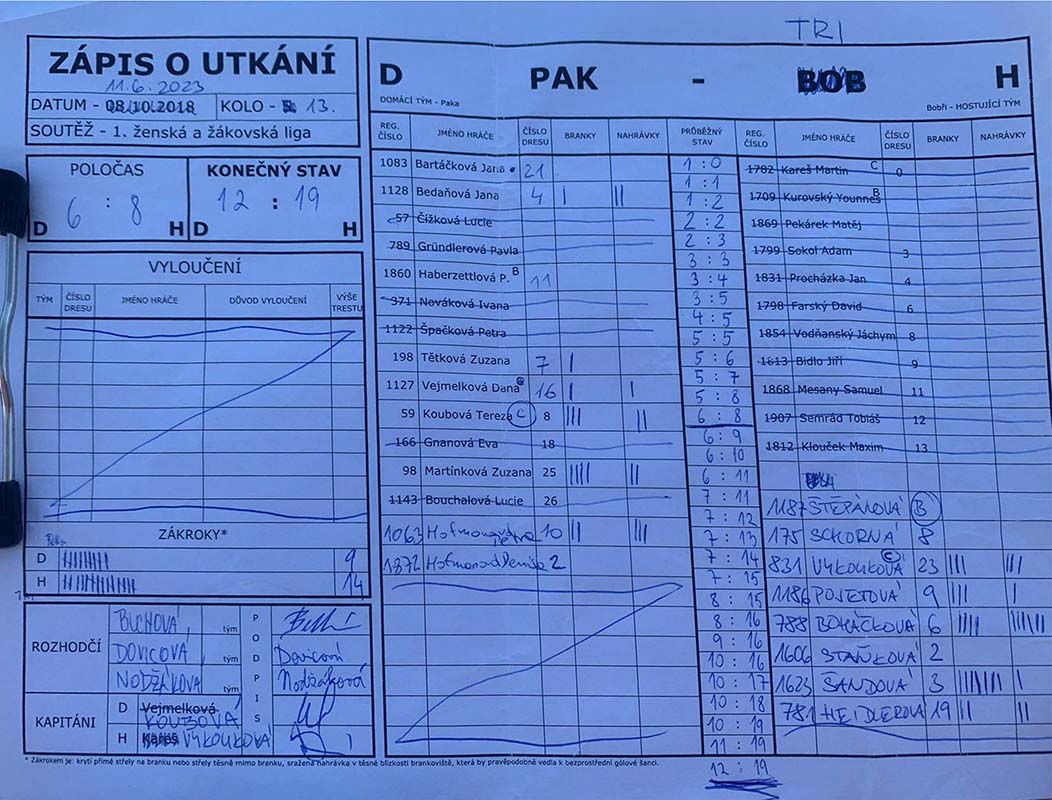 TRI
ZÁPIS O UTKÁNÍ
11.6.2023
DATUM - 08.10.2018 KOLO - 13.
SOUTĚŽ - 1. ženská a žákovská liga
D PAK - BOB H
DOMÁCÍ TÝM - Paka Bobři - HOSTUJÍCÍ TÝM
POLOČAS KONEČNÝ STAV
6 : 8 12 : 19
D H D H
VYLOUČENÍ
TÝM ČÍSLO DRESU JMÉNO HRÁČE DŮVOD VYLOUČENÍ VÝŠE TRESTU
ZÁKROKY*
D 9
H 14
ROZHODČÍ
BUCHOVÁ tým
DOVICOVÁ tým Dovicová
NODŽÁKOVÁ tým Nodžáková
PODPIS
KAPITÁNI
D Vejmelková
KOUBOVÁ
H Kareš VÝKOUKOVÁ
REG. ČÍSLO JMÉNO HRÁČE ČÍSLO DRESU BRANKY NAHRÁVKY
1083 Bartáčková Jana 21
1128 Bedaňová Jana 4 | ||
57 Čížková Lucie
789 Gründlerová Pavla
1860 Haberzettlová P. B 11
371 Nováková Ivana
1122 Špačková Petra
198 Tětková Zuzana 7 |
1127 Vejmelková Dana 16 | |
59 Koubová Tereza C 8 ||| ||
166 Gnanová Eva 18
98 Martínková Zuzana 25 ||||| ||
1143 Bouchalová Lucie 26
1063 10 || |||
1872 2
PRŮBĚŽNÝ STAV
1 : 0
1 : 1
1 : 2
2 : 2
2 : 3
3 : 3
3 : 4
3 : 5
4 : 5
5 : 5
5 : 6
5 : 7
5 : 8
6 : 8
6 : 9
6 : 10
6 : 11
7 : 11
7 : 12
7 : 13
7 : 14
7 : 15
8 : 15
8 : 16
9 : 16
10 : 16
10 : 17
10 : 18
10 : 19
11 : 19
12 : 19
REG. ČÍSLO JMÉNO HRÁČE ČÍSLO DRESU BRANKY NAHRÁVKY
1782 Kareš Martin C 0
1709 Kurovský Younnes B
1869 Pekárek Matěj
1799 Sokol Adam 3
1831 Procházka Jan 4
1798 Farský David 6
1854 Vodňanský Jáchym 8
1813 Bidlo Jiří 9
1868 Mesany Samuel 11
1907 Semrád Tobiáš 12
1812 Klouček Maxim 13
1187 ŠTĚPÁNOVÁ B
175 SCHORNÁ 8
831 VÝKOUKOVÁ C 23 ||| |||
1186 POJETOVÁ 9 ||| |
788 BOHÁČKOVÁ 6 ||||
1606 STAŇKOVÁ 2
1623 ŠANDOVÁ 3 |
781 HEIDLEROVÁ 19 || ||
* Zákrokem je: krytí přímé střely na branku nebo střely těsně mimo branku, sražená nahrávka v těsné blízkosti brankoviště, která by pravěpodobně vedla k bezprostřední gólové šanci.